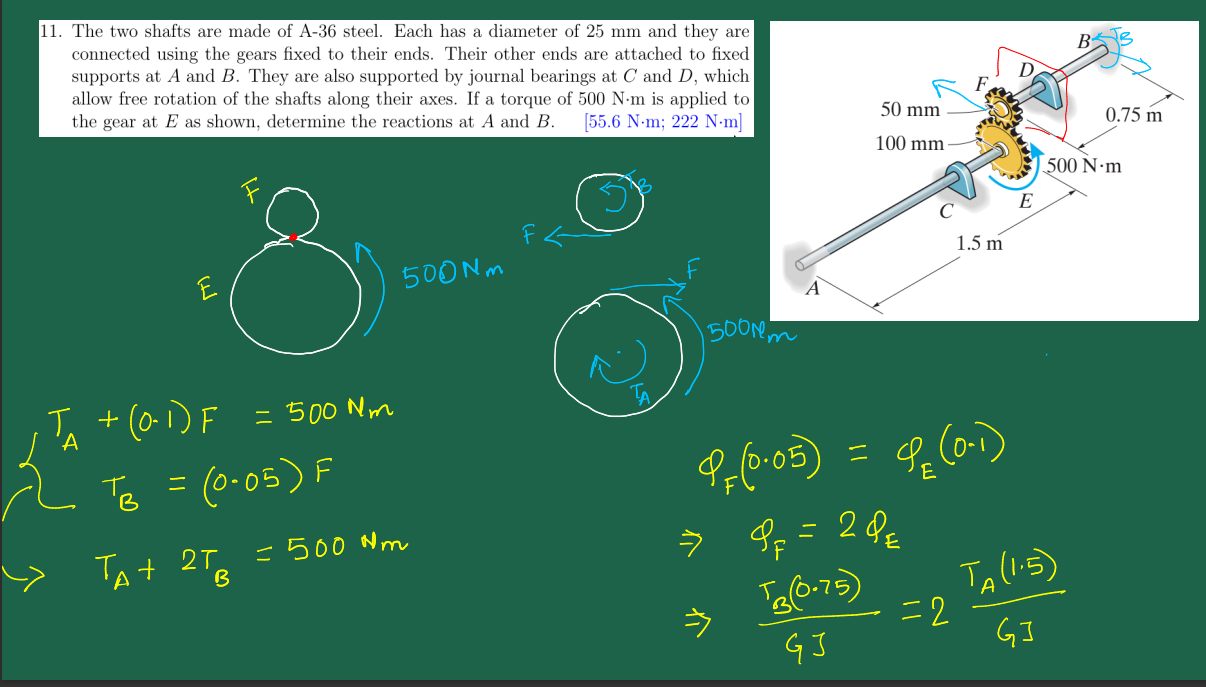 11. The two shafts are made of A-36 steel. Each has a diameter of 25 mm and they are
connected using the gears fixed to their ends. Their other ends are attached to fixed
supports at A and B. They are also supported by journal bearings at C and D, which
allow free rotation of the shafts along their axes. If a torque of 500 N·m is applied to
the gear at E as shown, determine the reactions at A and B. [55.6 N·m; 222 N·m]
B
T_B
D
F
50 mm
0.75 m
100 mm
500 N·m
E
C
1.5 m
A
F
E
500 Nm
T_B
F
F
500 Nm
T_A
T_A + (0.1) F = 500 Nm
T_B = (0.05) F
T_A + 2T_B = 500 Nm
φ_F (0.05) = φ_E (0.1)
⇒ φ_F = 2 φ_E
⇒ T_B (0.75) / GJ = 2 T_A (1.5) / GJ